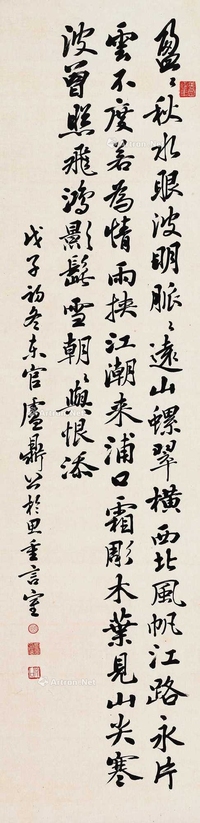 盈〻秋水眼波明脈〻遠山螺翠橫西北風帆江路永片
雲不度若為情雨挾江潮來浦口霜彫木葉見山尖寒
波曾照飛鴻影髭雪朝〻與恨添
戊子初冬東官盧鼎公於思重言室